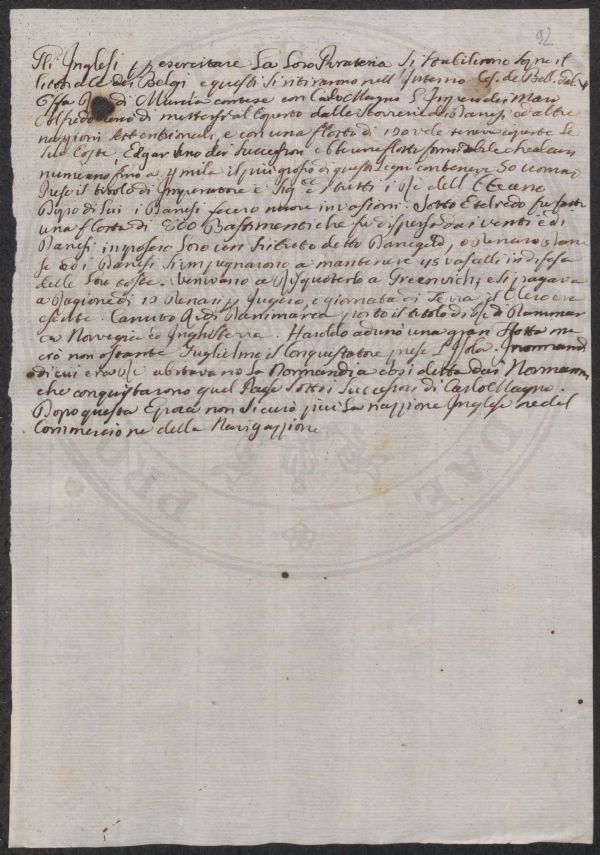 92
Gli Inglesi p esercitare La Loro Pirateria si stabilirono sopra il
litorale dei Belgi e questi si ritirarono nell'Interno Ces. de Bell. Gal.
Offa Re di Mercia contese con Carlo Magno L'Impero dei Mari
Alfredo di mettersi al coperto dalle Scorrerie dei Danesi ed altre
nazzioni Settentrionali, e con una flotta di 120 vele teneva coperte Le
Sue Coste, Edgar uno dei Successori ebbe una flotta formidabile che alcuni
numerano fino a 4 mila il più grosso di questi Legni conteneva 50 uomini
Prese il titolo di Imperatore e Sig.re di tutti i Re dell'Oceano
Dopo di Lui i Danesi fecero nuove invasioni. Sotto Etelredo fu fatta
una flotta di 800 Bastimenti che fu dispersa dai venti e di
Danesi imposero Loro un Tributo detto Danegeld, o Denaro Dane
se ed i Danesi s'impegnarono a mantenere 45 vascelli in difesa
delle Loro coste. venivano a Riscuoterlo a Greenvich, e si pagava
a Ragione di 12 Denari p Jugero, o giornata di Terra il Clero era
esente. Canuto Re di Danimarca portò il titolo di Re di Danimar
ca Norvegia ed Inghilterra. Haroldo adunò una gran flotta ma
ciò non ostante Guglielmo il Conquistatore prese L'Isola. I normand
di cui era Re abitavano La Normandia così detta dai Normanni
che conquistarono quel Paese sotto i Successori di Carlo Magno.
Dopo questa Epoca non si curò più La nazzione Inglese ne del
Commercio ne della Navigazzione